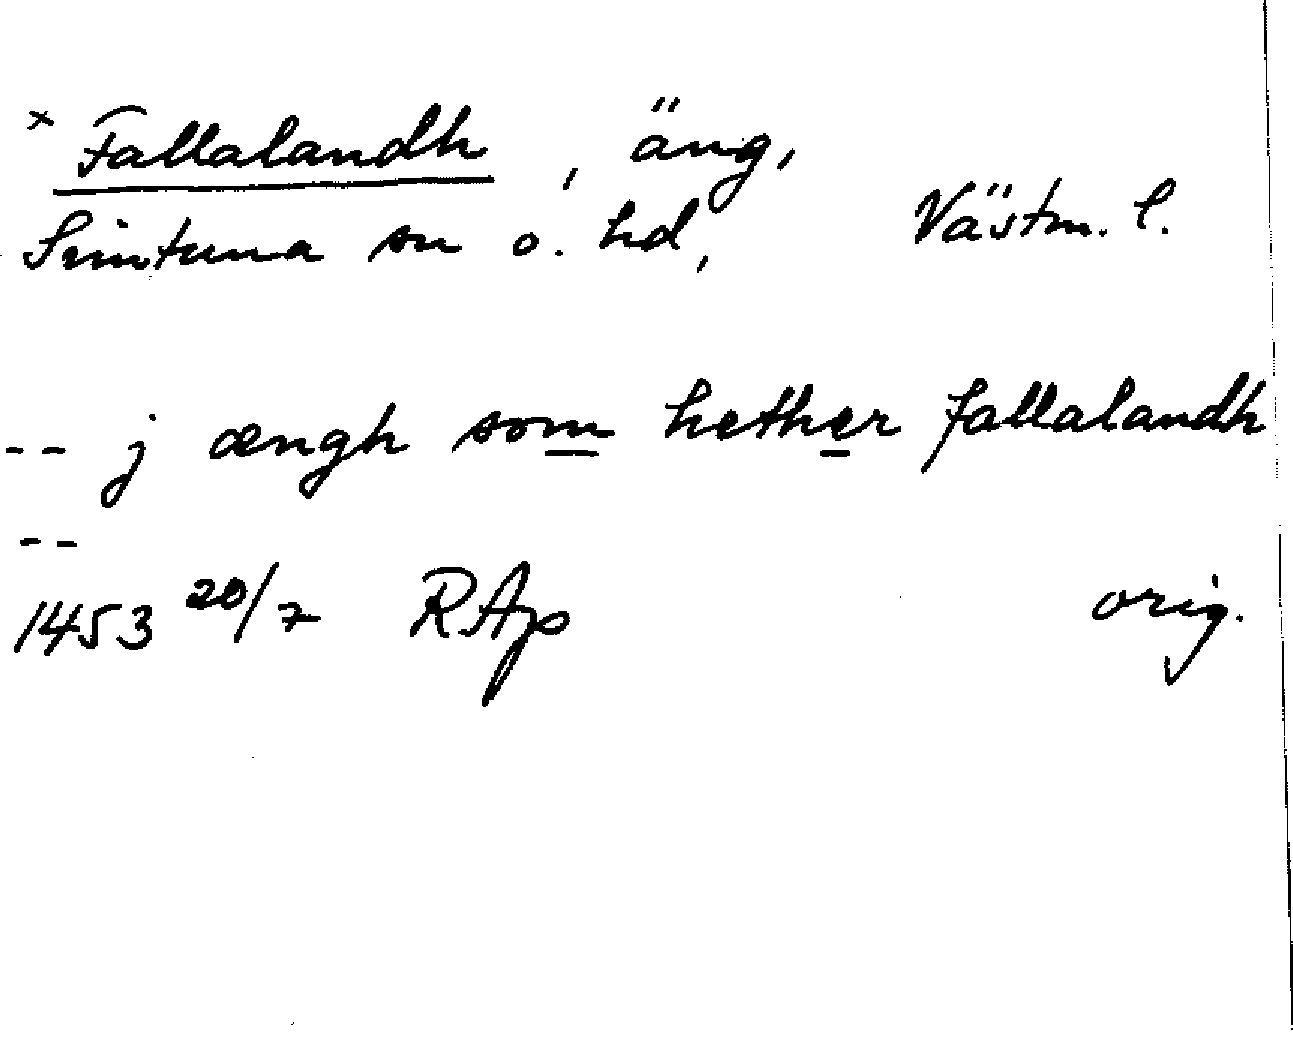 × Fallalandh, äng,
Simtuna sn o. hd, Västm. l.
-- j ængh som hether fallalandh
--
1453 20/7 RAp orig.